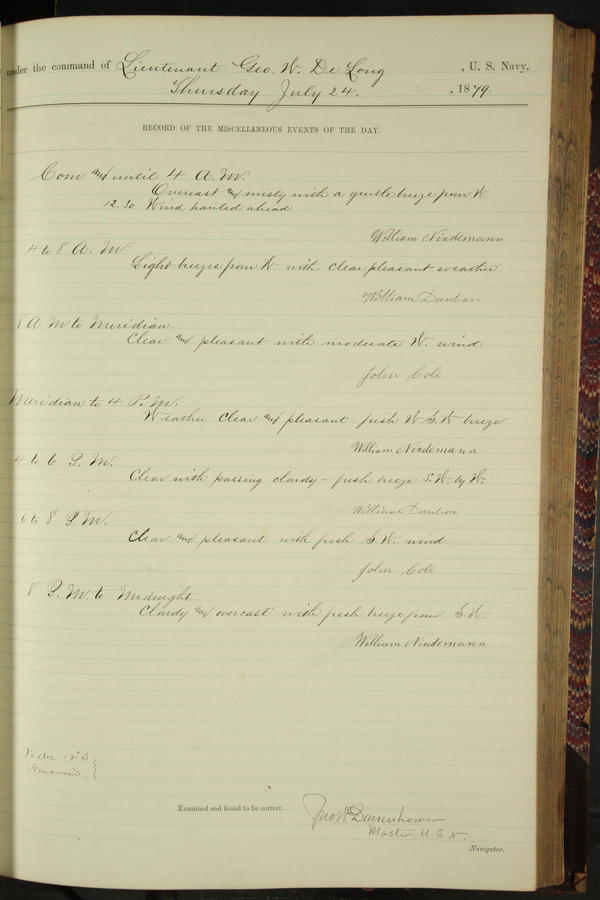 under the command of Lieutenant Geo. W. De Long, U. S. Navy,
Thursday July 24. , 1879.
RECORD OF THE MISCELLANEOUS EVENTS OF THE DAY.
Com and until 4 A. M.
Overcast and misty with a gentle breeze from W.
12.30 Wind hauled ahead
William Nindemann
4 to 8 A. M.
Light breezes from W. with clear pleasant weather
William Dunbar
8 A. M to Meridian.
Clear and pleasant with moderate W. wind
John Cole
Meridian to 4 P. M.
Weather clear and pleasant - fresh W S. W breeze
William Nindemann
4 to 6 P. M.
Clear with passing clouds - fresh breeze S. W. by W.
William Dunbar
6 to 8 P. M.
Clear and pleasant with fresh S. W. wind.
John Cole
8 P. M. to Midnight
Cloudy and overcast with fresh breeze from S. W.
William Nindemann
Examined and found to be correct.
Jno W Danenhower
Master U. S. N.
Navigator.